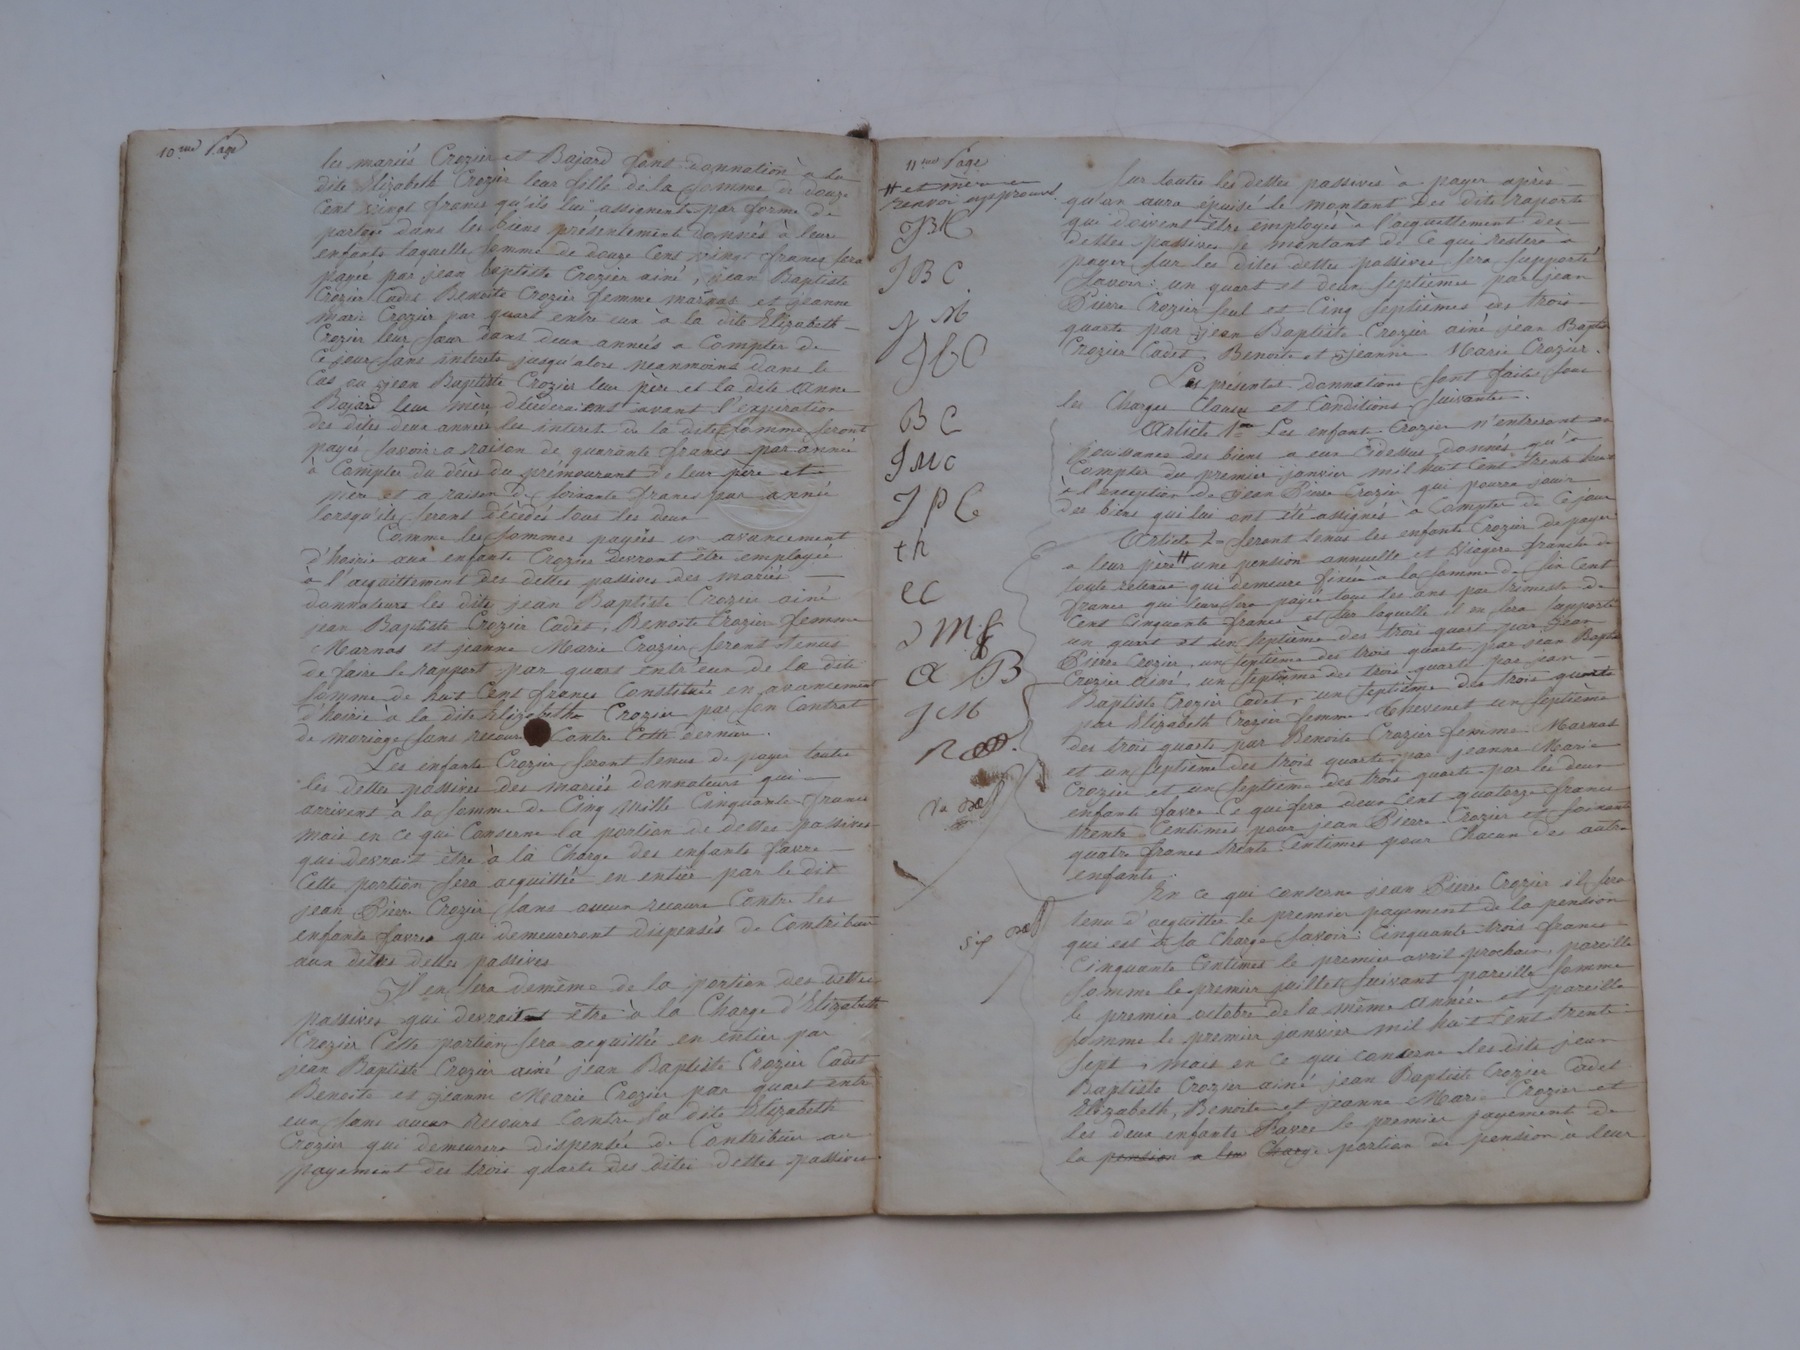 10me Page
les mariés Crozier et Bajard font donnation à la
dite Elizabeth Crozier leur fille de la somme de douze
Cent vingt francs qu'ils lui assignent par forme de
partage dans les biens présentement donnés à leurs
enfants laquelle somme de douze Cent vingt francs sera
payée par jean baptiste Crozier ainé, jean Baptiste
Crozier Cadet Benoite Crozier femme Marnas et jeanne
marie Crozier par quart entre eux à la dite Elizabeth
Crozier leur sœur dans deux années a Compter de
Ce jour sans interets jusqu'alors neanmoins dans le
Cas ou jean Baptiste Crozier leur père et la dite anne
Bajard leur mère décéderaient avant l'expiration
des dites deux années les interet de la dite somme seront
payés savoir a raison de quarante francs par année
à Compter du décès du prémourant de leur père et
mère et a raison de soixante francs par année
lorsqu'ils seront décédés tous les deux
Comme les sommes payées en avancement
d'hoirie aux enfants Crozier devront être employée
à l'aquittement des dettes passives des mariés
donnateurs les dits jean Baptiste Crozier ainé
jean Baptiste Crozier Cadet, Benoite Crozier femme
Marnas et jeanne Marie Crozier seront tenus
de faire le rapport par quart entr'eux de la dite
somme de huit Cent francs Constituée en avancement
d'hoirie à la dite Elizabeth Crozier par son Contrat
de mariage sans recours Contre Cette dernière.
Les enfants Crozier seront tenus de payer toutes
les dettes passives des mariés donnateurs qui
arrivent à la somme de Cinq Mille Cinquante francs
mais en ce qui Conserne la portion de dettes passives
qui devrait être à la Charge des enfants favre
Cette portion sera acquittée en entier par le dit
jean Pierre Crozier sans aucun recours Contre les
enfants favres qui demeureront dispensés de Contribuer
aux dites dettes passives
Il en sera demême de la portion des dettes
passives qui devrait être à la Charge d'Elizabeth
Crozier Cette portion sera acquittée en entier par
jean Baptiste Crozier ainé jean Baptiste Crozier Cadet
Benoite et jeanne Marie Crozier par quart entre
eux sans aucun Recours Contre la dite Elizabeth
Crozier qui demeurera dispensée de Contribuer au
payement des trois quarts des dites dettes passives
11me Page
# et mère
renvoi approuvé
JBC
J M
B C
JMC
J P C
th
EC
J M f
A B
J M
Sur toutes les dettes passives à payer après
qu'on aura épuisé le montant des dits raports
qui doivent être employés à l'aquittement des
dettes passives le montant de Ce qui restera à
payer sur les dites dettes passives sera supporté
Savoir: un quart et deux septièmes par jean
Pierre Crozier seul et Cinq septièmes des trois
quarts par jean Baptiste Crozier ainé jean Baptiste
Crozier Cadet, Benoite et jeanne Marie Crozier.
Les présentes donnations sont faites sous
les Charges Clauses et Conditions suivantes.
Article 1er Les enfants Crozier n'entreront en
jouissance des biens a eux Cidessus donnés qu'à
Compter du premier janvier mil huit Cent trente
à l'exception de jean Pierre Crozier qui pourra jouir
des biens qui lui ont été assignés à Compter de Ce jour
Article 2= Seront tenus les enfants Crozier de payer
a leur père # une pension annuelle et viagère franche de
toute retenue qui demeure fixée à la somme de six Cent
francs qui leur sera payée tous les ans par trimestre de
Cent Cinquante francs et sur laquelle il en sera supporté
un quart et un septième des trois quart par jean
Pierre Crozier, un septième des trois quarts par jean Baptiste
Crozier ainé, un septième des trois quarts par jean
Baptiste Crozier Cadet, un septième des trois quarts
par Elizabeth Crozier femme Chevenet un septième
des trois quarts par Benoite Crozier femme Marnas
et un septième des trois quarts par jeanne Marie
Crozier et un septième des trois quarts par les deux
enfants favre Ce qui fera deux Cent quatorze francs
trente Centimes pour jean Pierre Crozier et soixante
quatre francs trente Centimes pour Chacun des autres
enfants.
En ce qui conserne jean Pierre Crozier il sera
tenu d'acquitter le premier payement de la pension
qui est à sa Charge Savoir: Cinquante trois francs
Cinquante Centimes le premier avril prochain, pareille
somme le premier juillet suivant pareille somme
le premier octobre de la même année et pareille
somme le premier janvier mil huit Cent trente
sept, mais en ce qui conserne les dits jean
Baptiste Crozier ainé jean Baptiste Crozier Cadet
Elizabeth, Benoite et jeanne Marie Crozier et
les deux enfants favre le premier payement de
la pension a leur Charge portion de pension à leur